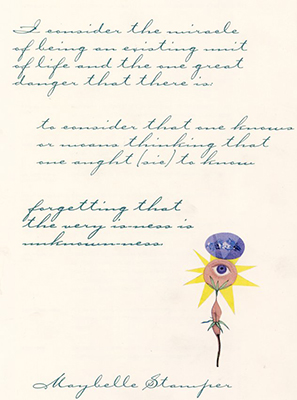 I consider the miracle
of being an existing unit
of life and the one great
danger that there is:
to consider that one knows
or means thinking that
one aught (sic) to know
forgetting that
the very isness is
unknownness
Maybelle Stamper